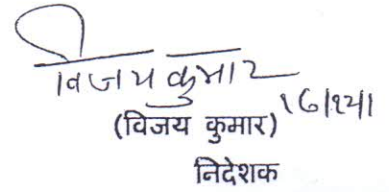 विजय कुमार
(विजय कुमार)
निदेशक